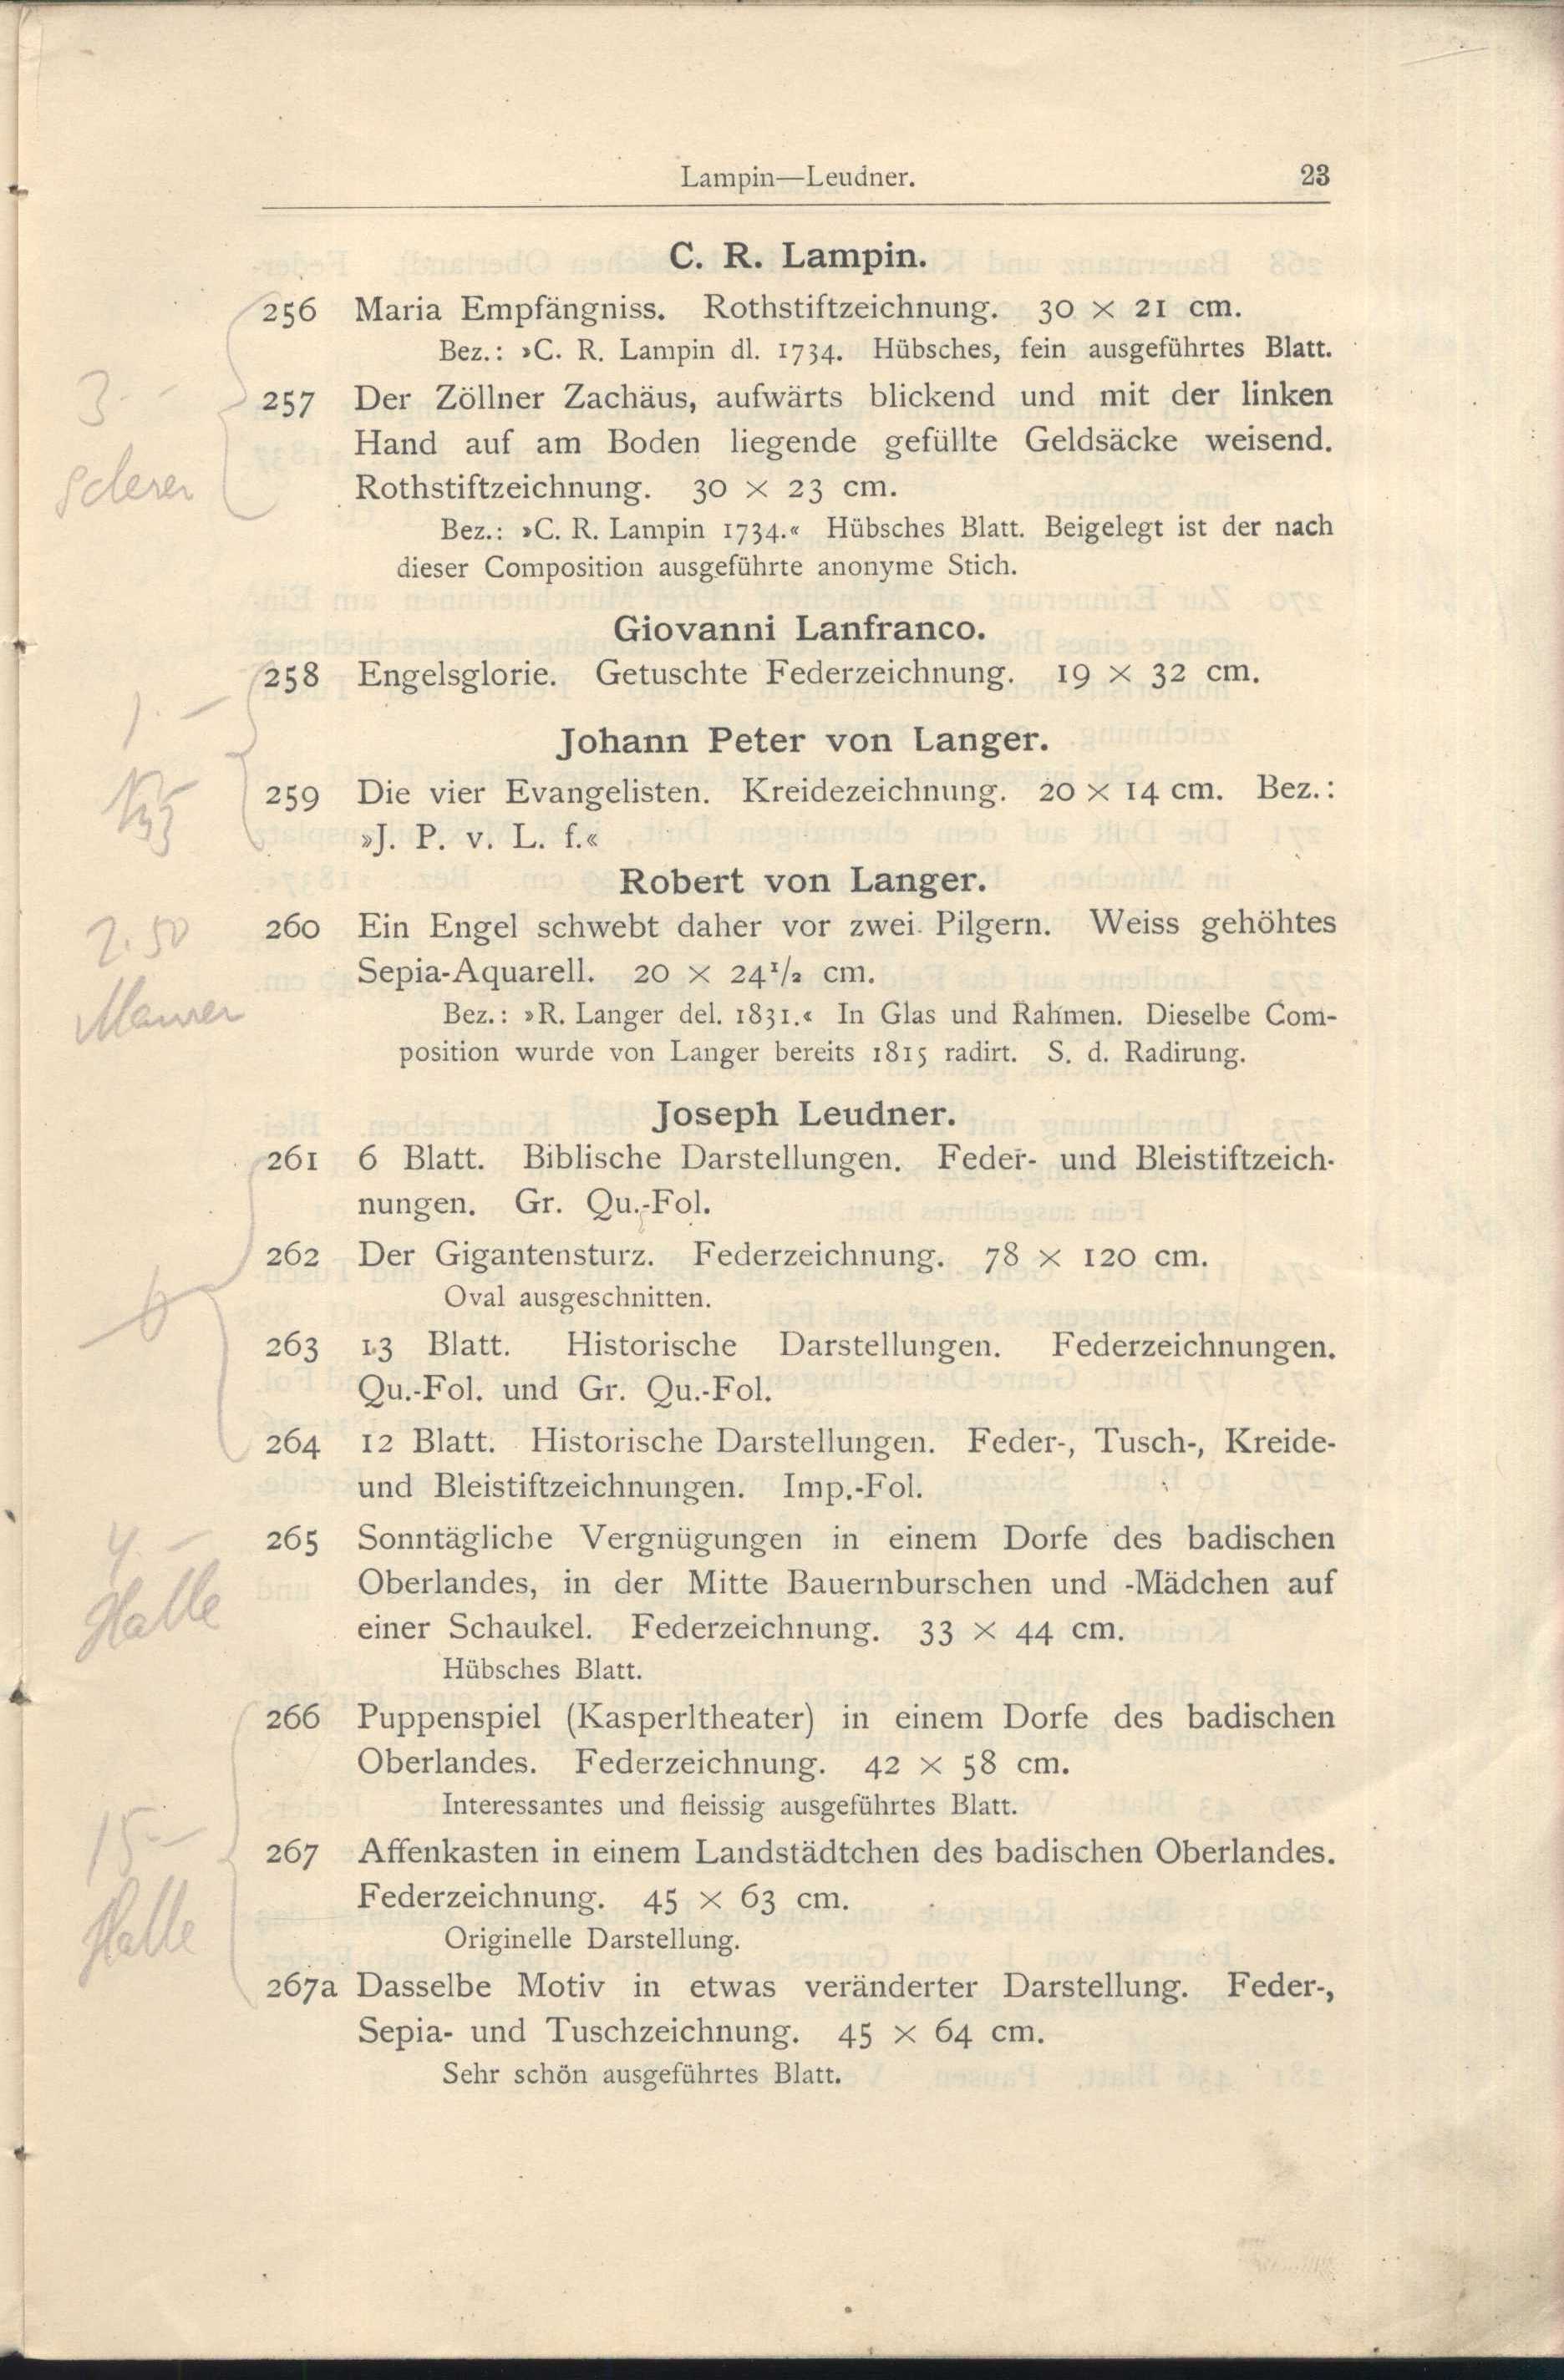 Lampin—Leudner. 23
C. R. Lampin.
256 Maria Empfängniss. Rothstiftzeichnung. 30 × 21 cm.
Bez.: »C. R. Lampin dl. 1734. Hübsches, fein ausgeführtes Blatt.
3.—
257 Der Zöllner Zachäus, aufwärts blickend und mit der linken
Hand auf am Boden liegende gefüllte Geldsäcke weisend.
Rothstiftzeichnung. 30 × 23 cm.
Bez.: »C. R. Lampin 1734.« Hübsches Blatt. Beigelegt ist der nach
dieser Composition ausgeführte anonyme Stich.
Giovanni Lanfranco.
258 Engelsglorie. Getuschte Federzeichnung. 19 × 32 cm.
1.—
Johann Peter von Langer.
259 Die vier Evangelisten. Kreidezeichnung. 20 × 14 cm. Bez.:
»J. P. v. L. f.«
Robert von Langer.
2.50
260 Ein Engel schwebt daher vor zwei Pilgern. Weiss gehöhtes
Sepia-Aquarell. 20 × 24¹/₂ cm.
Maurer
Bez.: »R. Langer del. 1831.« In Glas und Rahmen. Dieselbe Com-
position wurde von Langer bereits 1815 radirt. S. d. Radirung.
Joseph Leudner.
261 6 Blatt. Biblische Darstellungen. Feder- und Bleistiftzeich-
nungen. Gr. Qu.-Fol.
262 Der Gigantensturz. Federzeichnung. 78 × 120 cm.
Oval ausgeschnitten.
263 13 Blatt. Historische Darstellungen. Federzeichnungen.
Qu.-Fol. und Gr. Qu.-Fol.
264 12 Blatt. Historische Darstellungen. Feder-, Tusch-, Kreide-
und Bleistiftzeichnungen. Imp.-Fol.
4.—
265 Sonntägliche Vergnügungen in einem Dorfe des badischen
Oberlandes, in der Mitte Bauernburschen und -Mädchen auf
Halle
einer Schaukel. Federzeichnung. 33 × 44 cm.
Hübsches Blatt.
266 Puppenspiel (Kasperltheater) in einem Dorfe des badischen
Oberlandes. Federzeichnung. 42 × 58 cm.
Interessantes und fleissig ausgeführtes Blatt.
15.—
267 Affenkasten in einem Landstädtchen des badischen Oberlandes.
Federzeichnung. 45 × 63 cm.
Halle
Originelle Darstellung.
267a Dasselbe Motiv in etwas veränderter Darstellung. Feder-,
Sepia- und Tuschzeichnung. 45 × 64 cm.
Sehr schön ausgeführtes Blatt.